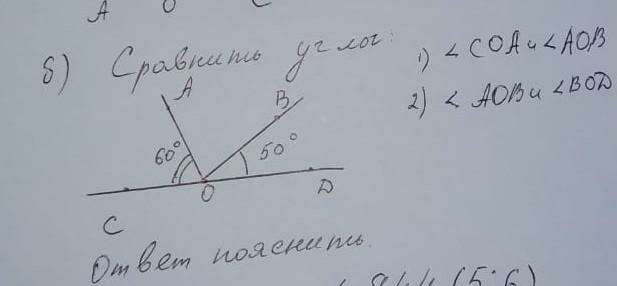 A O C
б) Сравнить углы: 1) ∠COA и ∠AOB
2) ∠AOB и ∠BOD
A
B
60°
50°
O
D
C
Ответ пояснить.